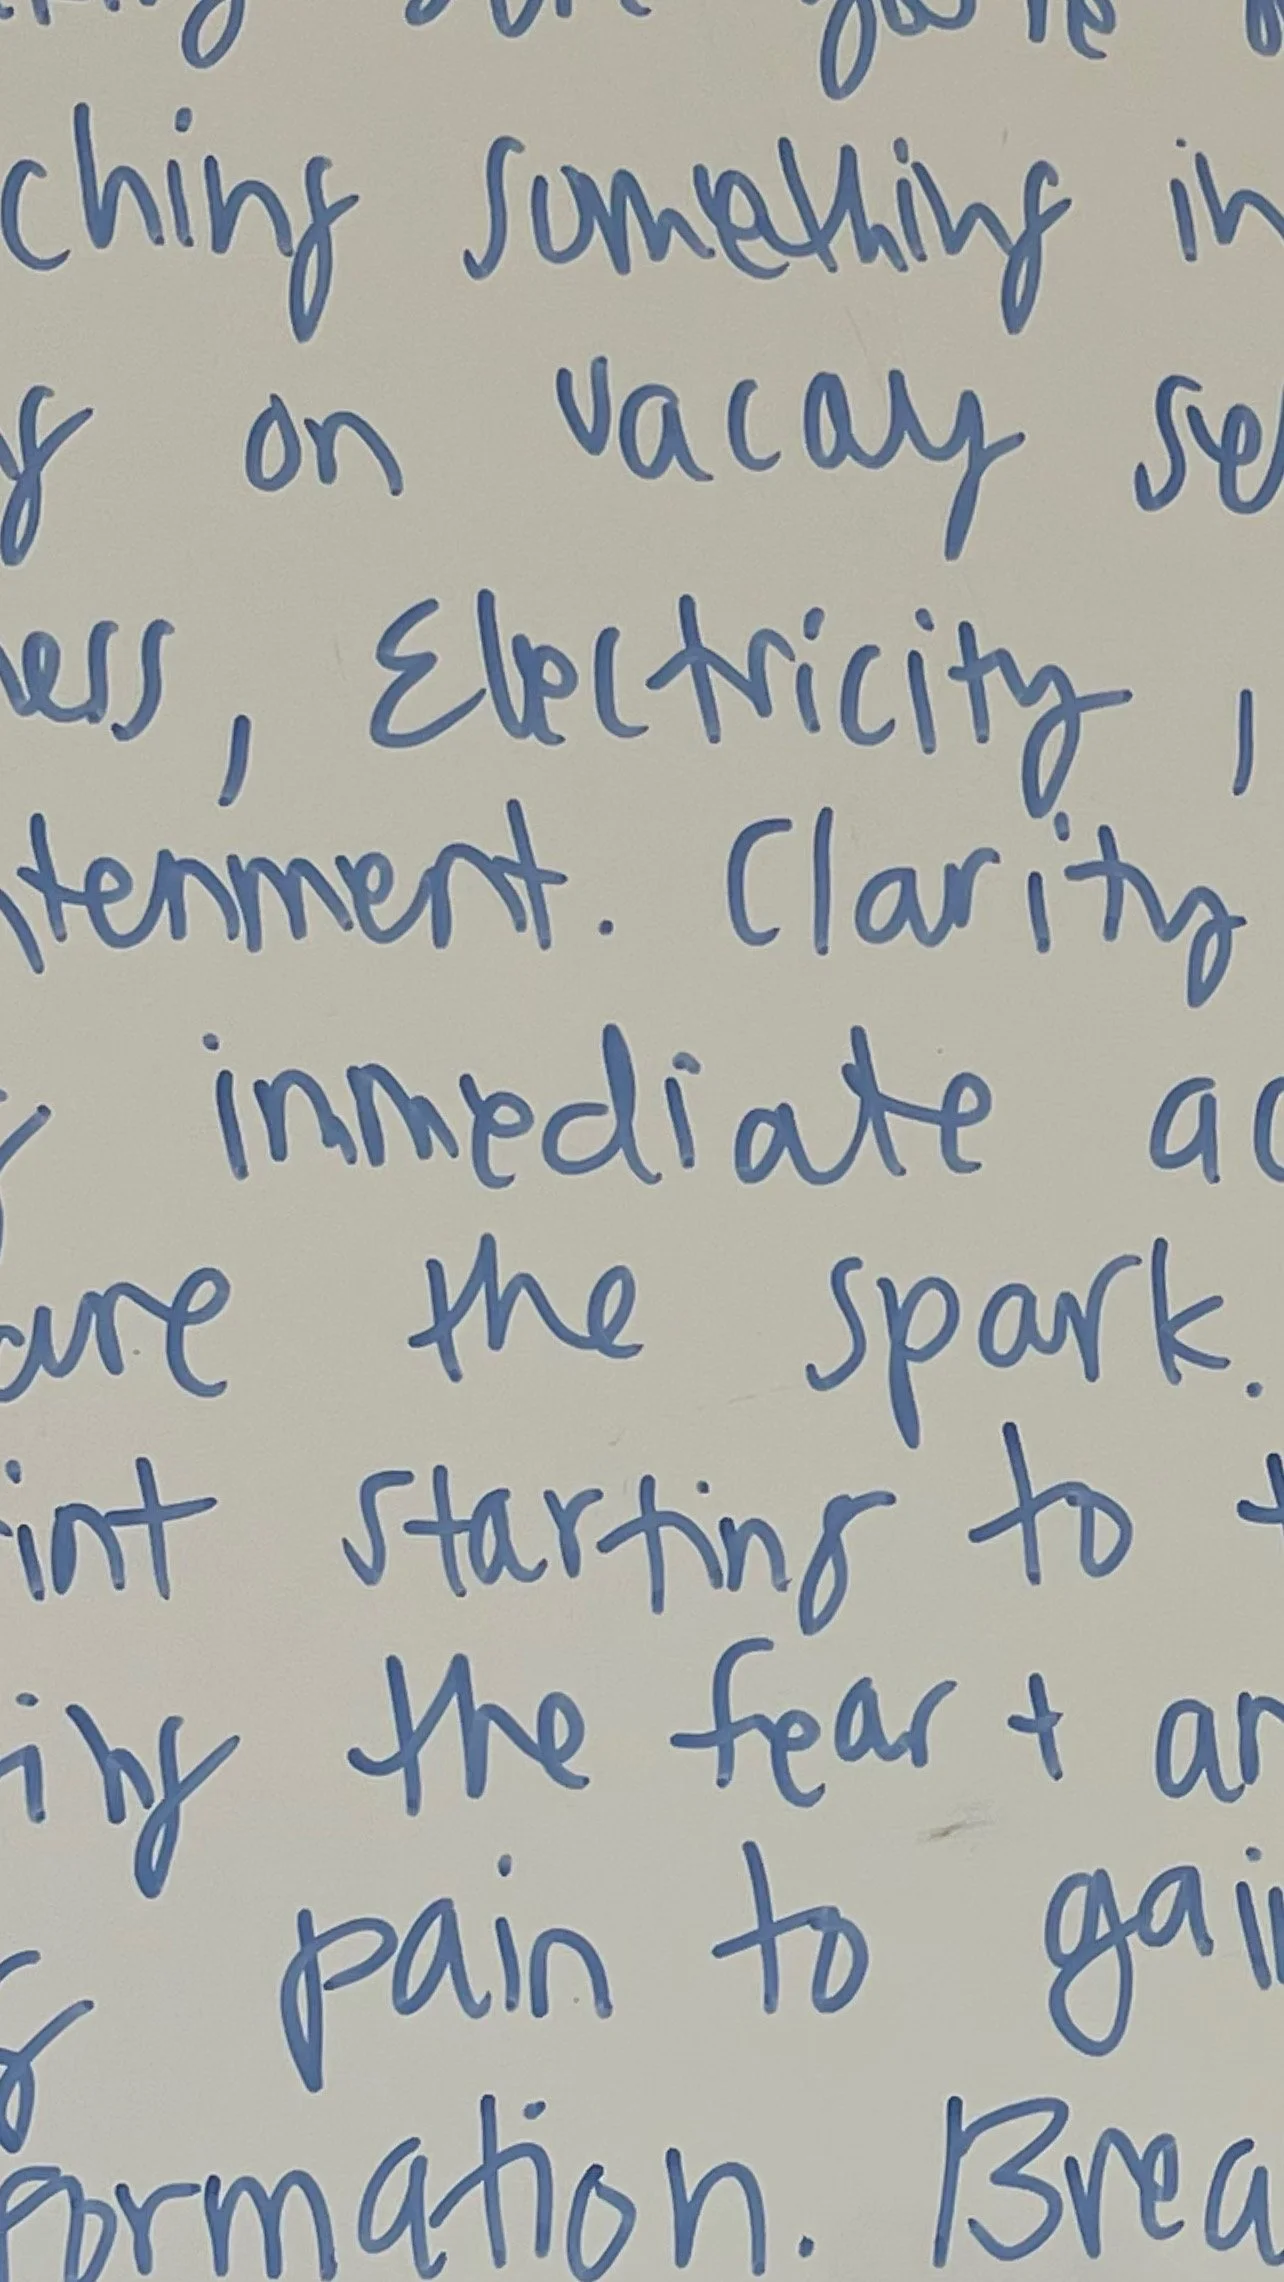 ching something in
on vacay se
ess, Electricity,
tenment. Clarity
immediate ac
ure the spark.
int starting to t
ing the fear + an
pain to gain
formation. Brea